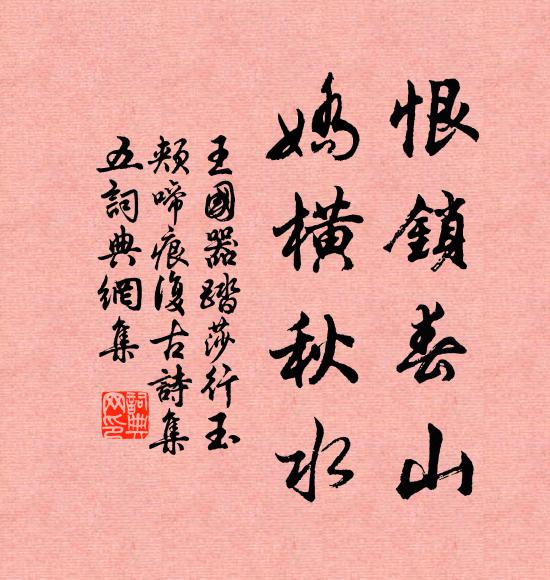 恨鎖春山
嬌橫秋水
王國器踏莎行玉
頰啼痕復古詩集
五詞典網集
詞典
网印